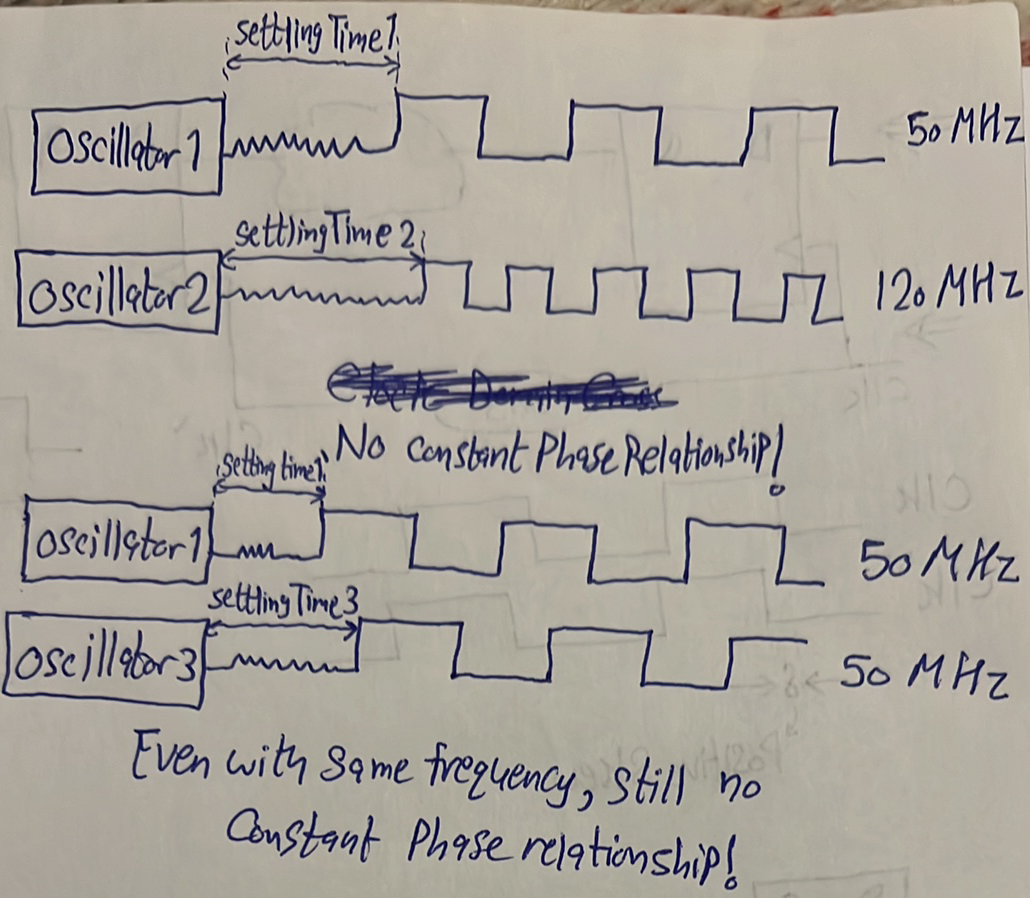 settling Time 1
Oscillator 1
50 MHz
settling Time 2
Oscillator 2
120 MHz
No Constant Phase Relationship!
setting time 1
Oscillator 1
50 MHz
settling Time 3
Oscillator 3
50 MHz
Even with same frequency, still no
Constant Phase relationship!